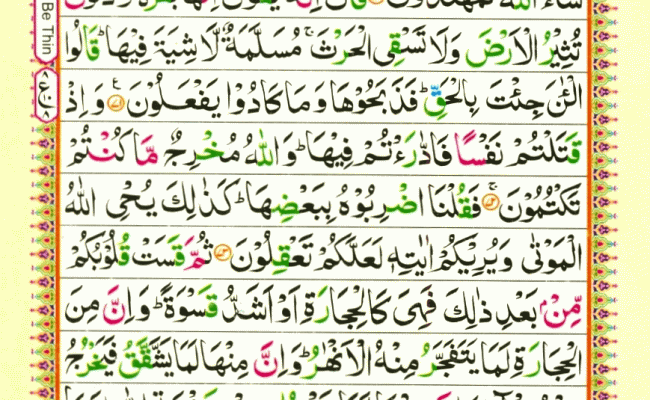 شَآءَ اللّٰهُ لَمُهْتَدُوْنَ قَالَ اِنَّهٗ يَقُوْلُ اِنَّهَا بَقَرَةٌ لَّا ذَلُوْلٌ
تُثِيْرُ الْاَرْضَ وَلَا تَسْقِى الْحَرْثَ ۚ مُسَلَّمَةٌ لَّا شِيَةَ فِيْهَا ؕ قَالُوا
الْـٰٔنَ جِئْتَ بِالْحَقِّ ؕ فَذَبَحُوْهَا وَمَا كَادُوْا يَفْعَلُوْنَ ۝۷۱ وَاِذْ
قَتَلْتُمْ نَفْسًا فَادّٰرَءْتُمْ فِيْهَا ؕ وَاللّٰهُ مُخْرِجٌ مَّا كُنْتُمْ
تَكْتُمُوْنَ ۝۷۲ ۚ فَقُلْنَا اضْرِبُوْهُ بِبَعْضِهَا ؕ كَذٰلِكَ يُحْيِ اللّٰهُ
الْمَوْتٰى وَيُرِيْكُمْ اٰيٰتِهٖ لَعَلَّكُمْ تَعْقِلُوْنَ ۝۷۳ ثُمَّ قَسَتْ قُلُوْبُكُمْ
مِّنْۢ بَعْدِ ذٰلِكَ فَهِىَ كَالْحِجَارَةِ اَوْ اَشَدُّ قَسْوَةً ؕ وَاِنَّ مِنَ
الْحِجَارَةِ لَمَا يَتَفَجَّرُ مِنْهُ الْاَنْهٰرُ ؕ وَاِنَّ مِنْهَا لَمَا يَشَّقَّقُ فَيَخْرُجُ
Be Thin